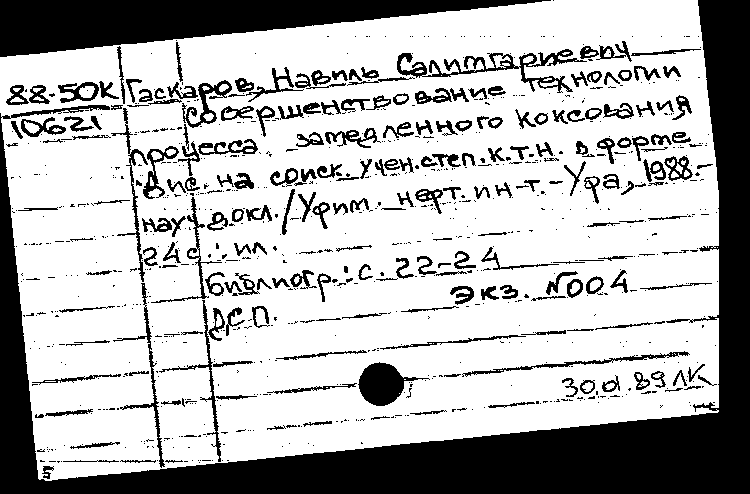 88-50К Гаскаров, Навиль Салимгариевич
10621 Совершенствование технологии
процесса замедленного коксования
Дис. на соиск. учен.степ.к.т.н. в форме
науч.докл./Уфим. нефт. ин-т.-Уфа, 1988.-
24с.: ил.
Библиогр.: с. 22-24
ДСП. Экз. №004
30.01.89 ЛК